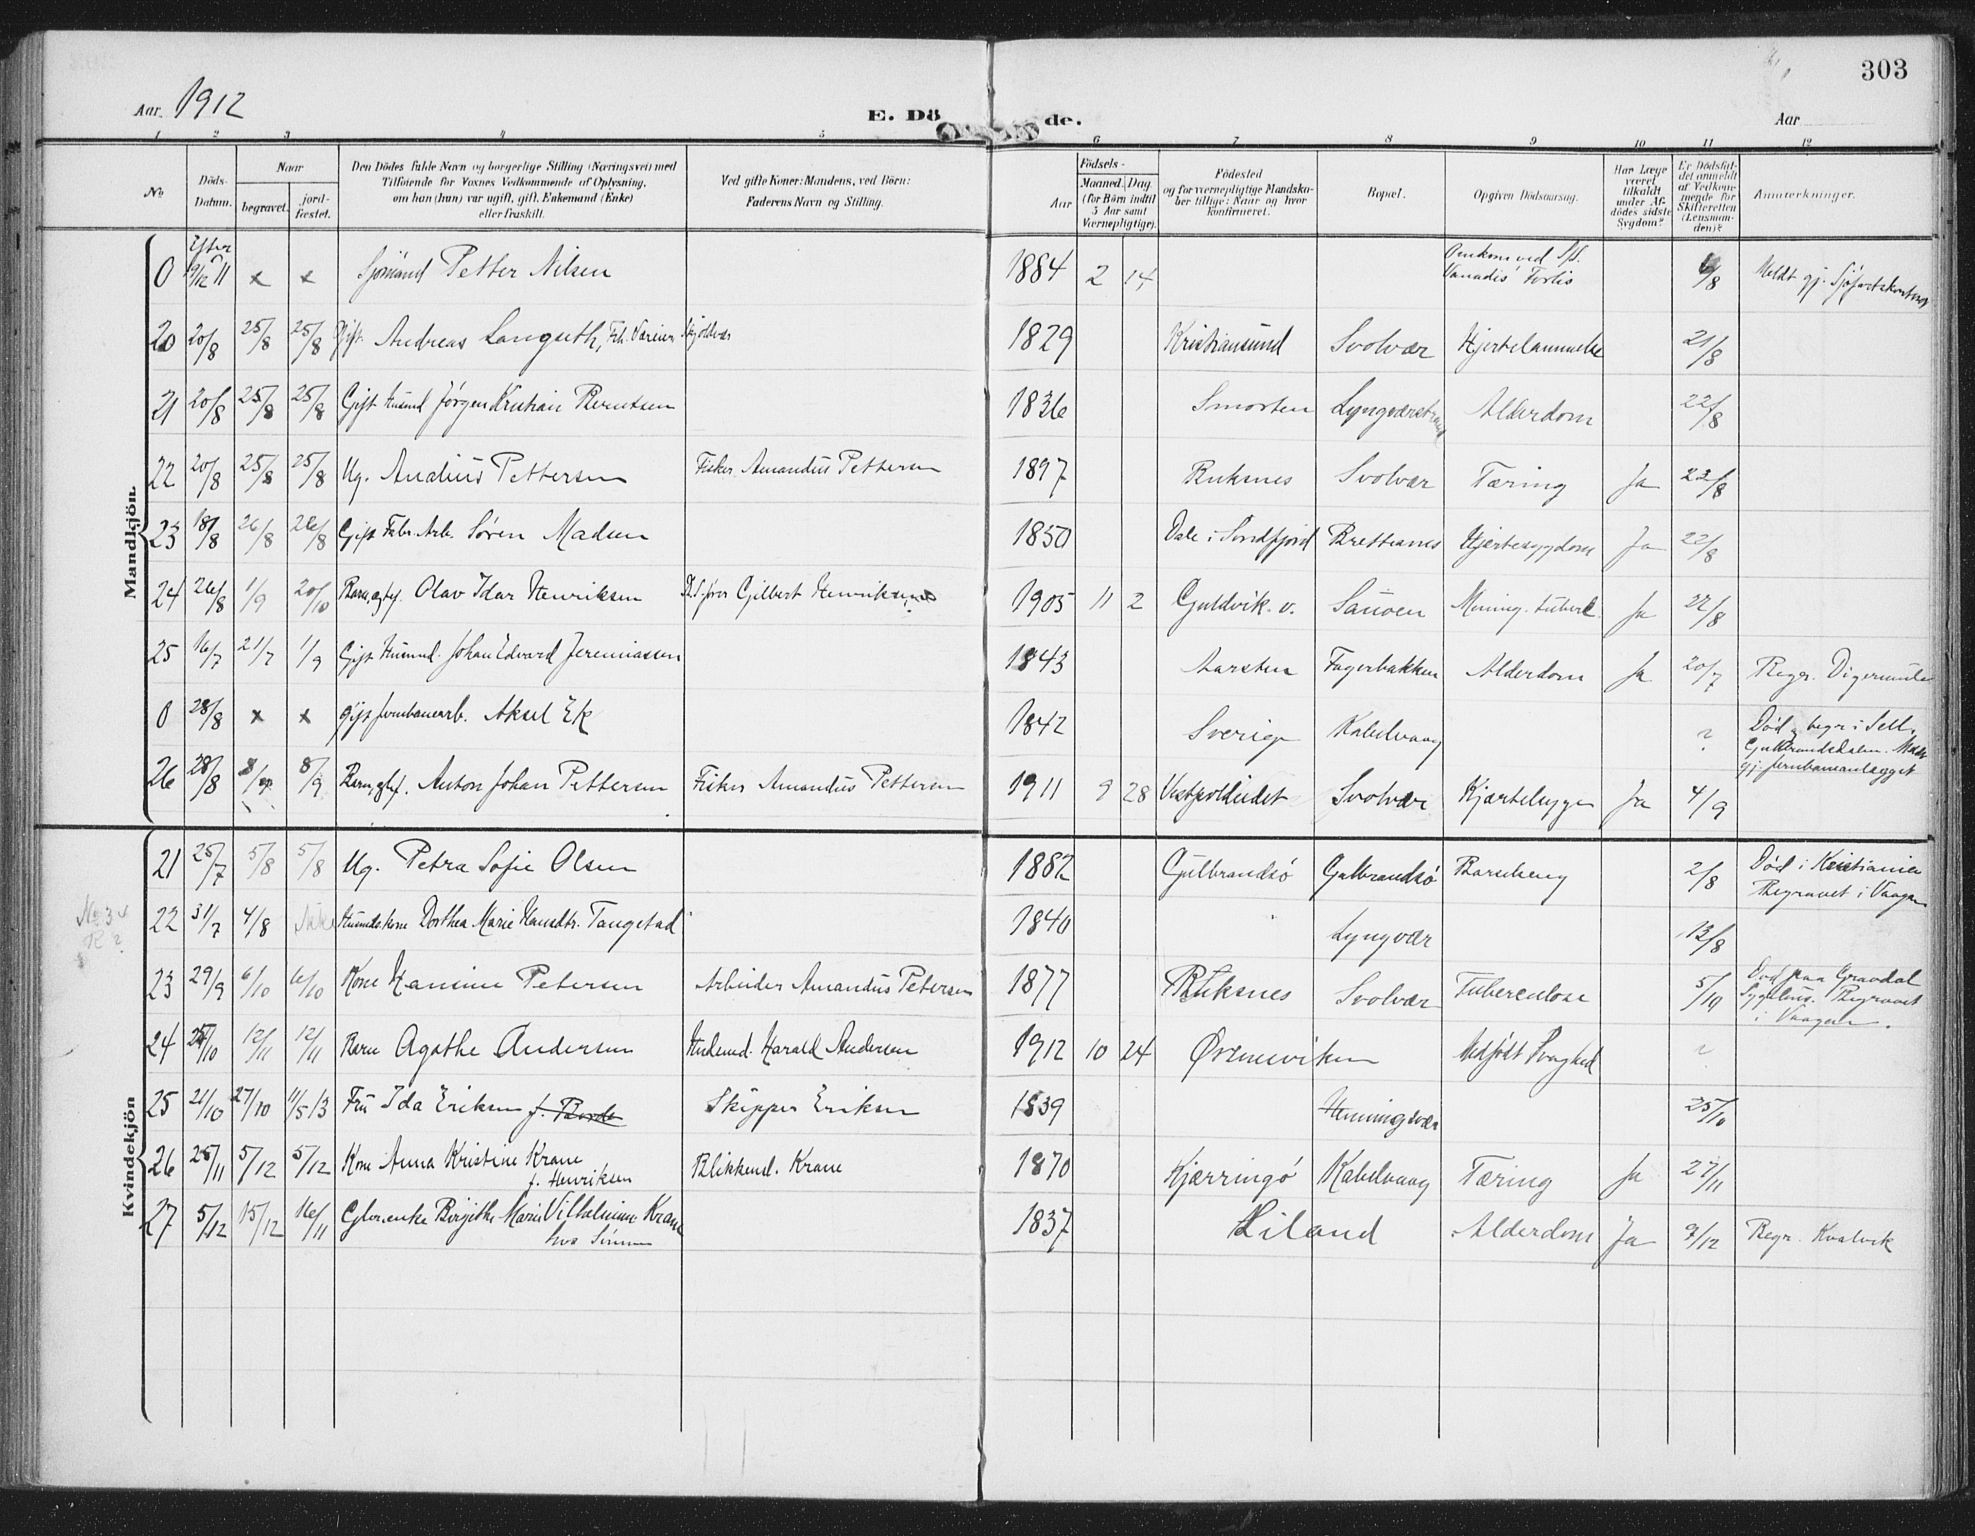 303
Aar 1912
E. Dö de.
Aar
1 2 3 4 5 6 7 8 9 10 11 12
No
Döds-Datum.
Naar
begravet.
jord-fæstet.
Den Dödes fulde Navn og borgerlige Stilling (Næringsvei) med
Tilföiende for Voxnes Vedkommende af Oplysning,
om han (hun) var ugift, gift, Enkemand (Enke)
eller fraskilt.
Ved gifte Koner: Mandens, ved Börn:
Faderens Navn og Stilling.
Födsels-
Aar
Maaned. Dag.
(for Börn indtil
5 Aar samt
Værnepligtige).
Födested
og for værnepligtige Mandska-
ber tillige: Naar og hvor
konfirmeret.
Bopæl.
Opgiven Dödsaarsag.
Har Læge
været
tilkaldt
under Af-
dödes sidste
Sygdom?
Er Dödsfal-
det anmeldt
af Vedkom-
mende for
Skifteretten
(Lensman-
den)?
Anmærkninger.
Mandkjön.
0 Efter 9/12 11 x x Sjömand Petter Nilsen 1884 2 14 Omkom ved S/S. Vanadis' Forlis 6/8 Meldt gj. Sjøfartskontoret
20 20/8 25/8 25/8 Gift Andreas Languth, 1829 Kristiansund Svolvær Hjertelammelse 21/8
21 20/8 25/8 25/8 Gift Husmd Jørgen Kristian Berntsen 1836 Smorten Lyngværstrand Alderdom 22/8
22 20/8 25/8 25/8 Ug. Andius Pettersen Fisker Amandus Pettersen 1897 Buksnes Svolvær Tæring Ja 23/8
23 18/8 26/8 26/8 Gift Fabr. Arb. Søren Madsen 1850 Dale i Sondfjord Brettesnes Hjertesygdom Ja 22/8
24 26/8 1/9 20/10 Barn, ægtef. Olav Idar Henriksen Gilbert Henriksen 1905 11 2 Guldvik. v. Sauøen Mening. tuberc. Ja 22/8
25 16/7 21/7 1/9 Gift Husmd. Johan Edvard Jeremiassen 1843 Aarsten Fagerbakken Alderdom Ja 20/7 Begr. Digermulen
0 28/8 x x gift jernbanearb. Aksel Ek 1842 Sverige Kabelvaag ? Død og begr i Sell, Gudbrandsdalen. Meldt gj. jernbaneanlægget
26 28/8 8/9 8/9 Barn, egtef. Anton Johan Pettersen Fisker Amandus Pettersen 1911 9 28 Vestpoldeidet Svolvær Kjærtelsyge Ja 4/9
Kvindekjön
21 25/7 5/8 5/8 Ug. Petra Sofie Olsen 1882 Gulbrandsö Gulbrandsö Barselseng 2/8 Død i Kristiania Begravet i Vaagan
No 34
22 31/7 4/8 Husmdskone Dorthea Marie Hansdtr. Tangstad 1840 Lyngvær 13/8
23 29/9 6/10 6/10 Kone Hansine Petersen Arbeider Amandus Petersen 1877 Buksnes Svolvær Tuberculose 5/10 Død paa Gravdal Sygehus. Begravet i Vaagan.
24 25/10 12/11 12/11 Barn Agathe Andersen Husmd. Harald Andersen 1912 10 24 Ørsnesviken Medfødt Svaghed ?
25 21/10 27/10 11/5 13 Fru Ida Eriksen f. Borde Skipper Eriksen 1839 Henningsvær 25/10
26 25/11 5/12 5/12 Kone Anna Kristine Krane f. Henriksen Blikkensl. Krane 1870 Kjærringö Kabelvaag Tæring Ja 27/11
27 5/12 15/12 16/11 Birgithe Marie Vilhelmine Krane 1837 Liland Alderdom Ja 9/12 Begr. Kvalvik